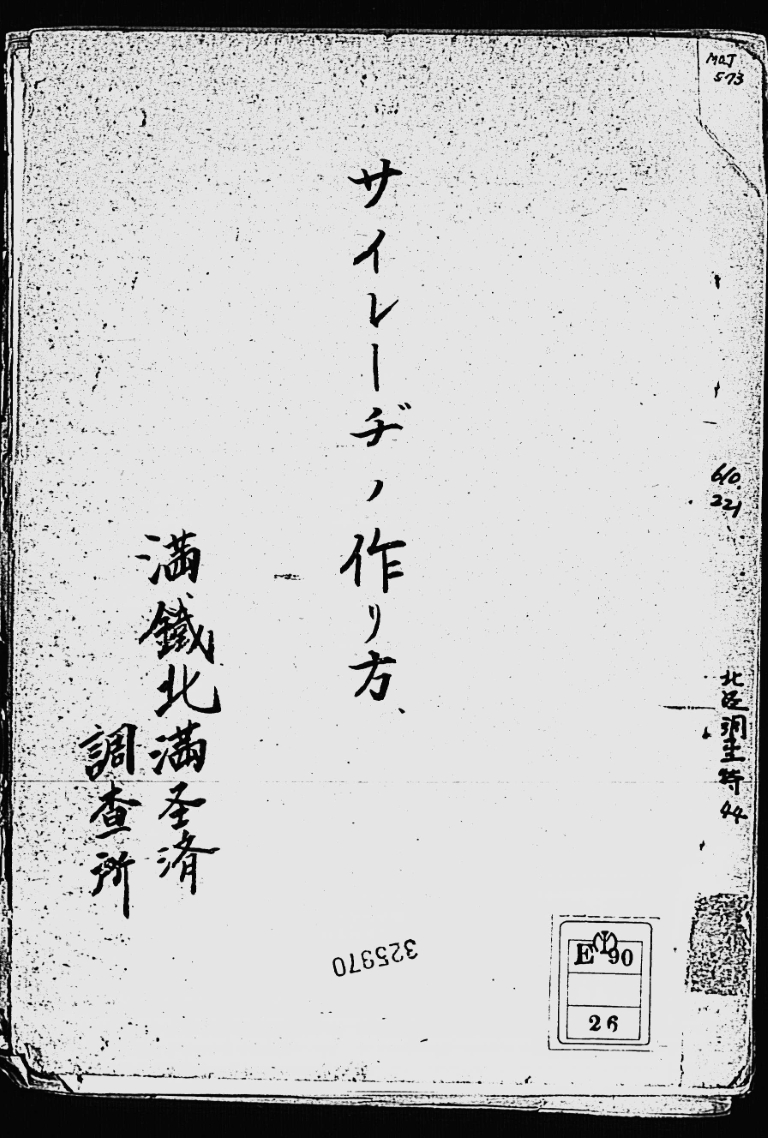 MOJ
573
610.
221
北経調生特 44
サイレーヂノ作リ方、
満鐵北満圣済
調査所
325970
E 90
26